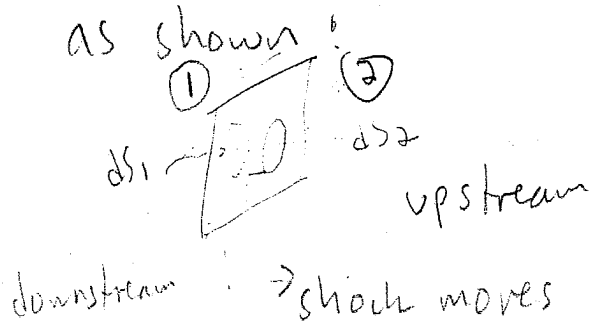 as shown:
① ②
dS₁ dS₂
upstream
downstream → shock moves